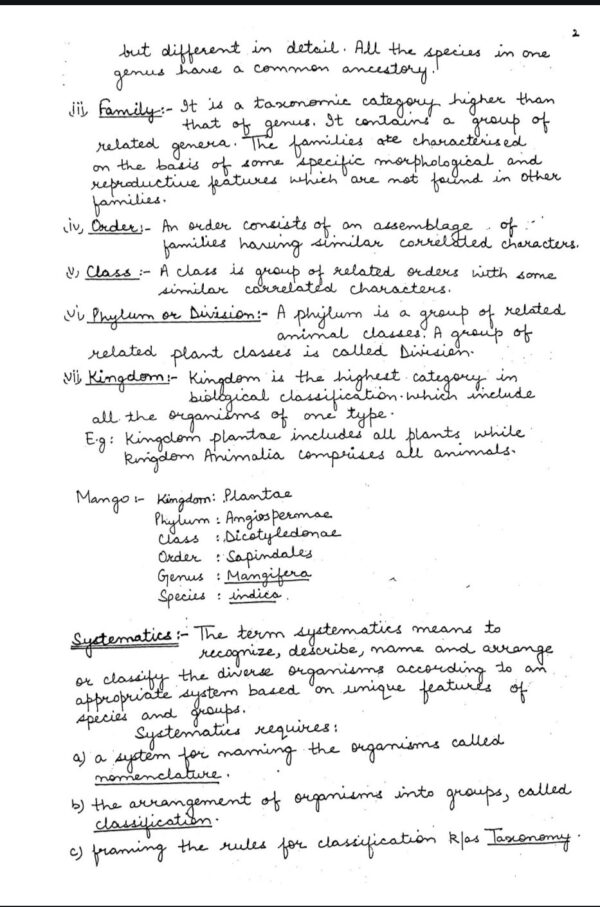 2
but different in detail. All the species in one
genus have a common ancestory.
iii, Family:- It is a taxonomic category higher than
that of genus. It contains a group of
related genera. The families are characterised
on the basis of some specific morphological and
reproductive features which are not found in other
families.
iv, Order:- An order consists of an assemblage of
families having similar correlated characters.
v, Class :- A class is group of related orders with some
similar correlated characters.
vi, Phylum or Division:- A phylum is a group of related
animal classes. A group of
related plant classes is called Division.
vii, Kingdom:- Kingdom is the highest category in
biological classification. which include
all the organisms of one type.
E.g: Kingdom plantae includes all plants while
kingdom Animalia comprises all animals.
Mango:- Kingdom: Plantae
Phylum : Angiospermae
class : Dicotyledonae
Order : Sapindales
Genus : Mangifera
Species : indica.
Systematics:- The term systematics means to
recognize, describe, name and arrange
or classify the diverse organisms according to an
appropriate system based on unique features of
species and groups.
Systematics requires:
a) a system for naming the organisms called
nomenclature.
b) the arrangement of organisms into groups, called
classification.
c) framing the rules for classification k/as Taxonomy.